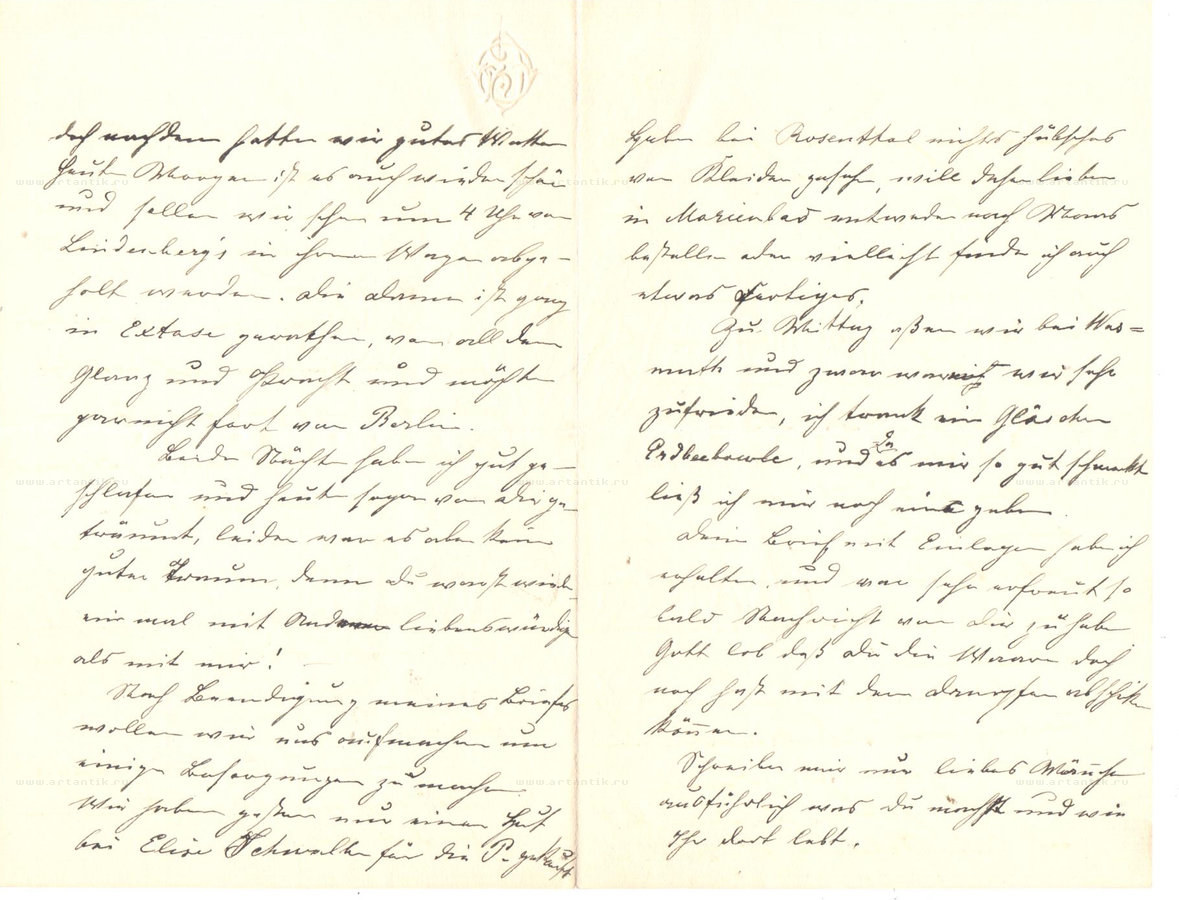 doch nachdem hatten wir gutes Wetter
Heute Morgen ist es auch wieder schön
und sollen wir schon um 4 Uhr von
Lindenberg's in ihrem Wagen abge-
holt werden. Die Damen ist ganz
in Extase gerathen, von all dem
Glanz und Pracht und möchte
garnicht fort von Berlin.
Beide Nächte habe ich gut ge-
schlafen und heute sogar von Dir ge-
träumt, leider war es aber kein
guter Traum, denn Du warst wieder
ein mal mit liebenswürdiger
als mit mir!
Nach Beendigung meines Briefes
wollen wir uns aufmachen um
einige Besorgungen zu machen.
Wir haben gestern nur einen Hut
bei Elise für die P. gekauft
Haben bei Rosenthal nichts hübsches
von Kleider gesehen, will daher lieber
in Marienbad entweder nach Maas
bestellen oder vielleicht finde ich auch
etwas Fertiges.
Zu Mittag aßen wir bei
und zwar waren wir sehr
zufrieden, ich trank ein Gläschen
Erdbeebowle, und da es mir so gut schmeckte
ließ ich mir noch eins geben.
Dein Brief mit Einlagen habe ich
erhalten, und war sehr erfreut so
bald Nachricht von Dir zu haben
Gott lob daß Du die Waaren doch
noch hast mit dem Dampfer abschicken
können.
Schreibe mir nur liebes Männchen
ausführlich was Du machst und wie
Ihr dort lebt.
www.artantik.ru